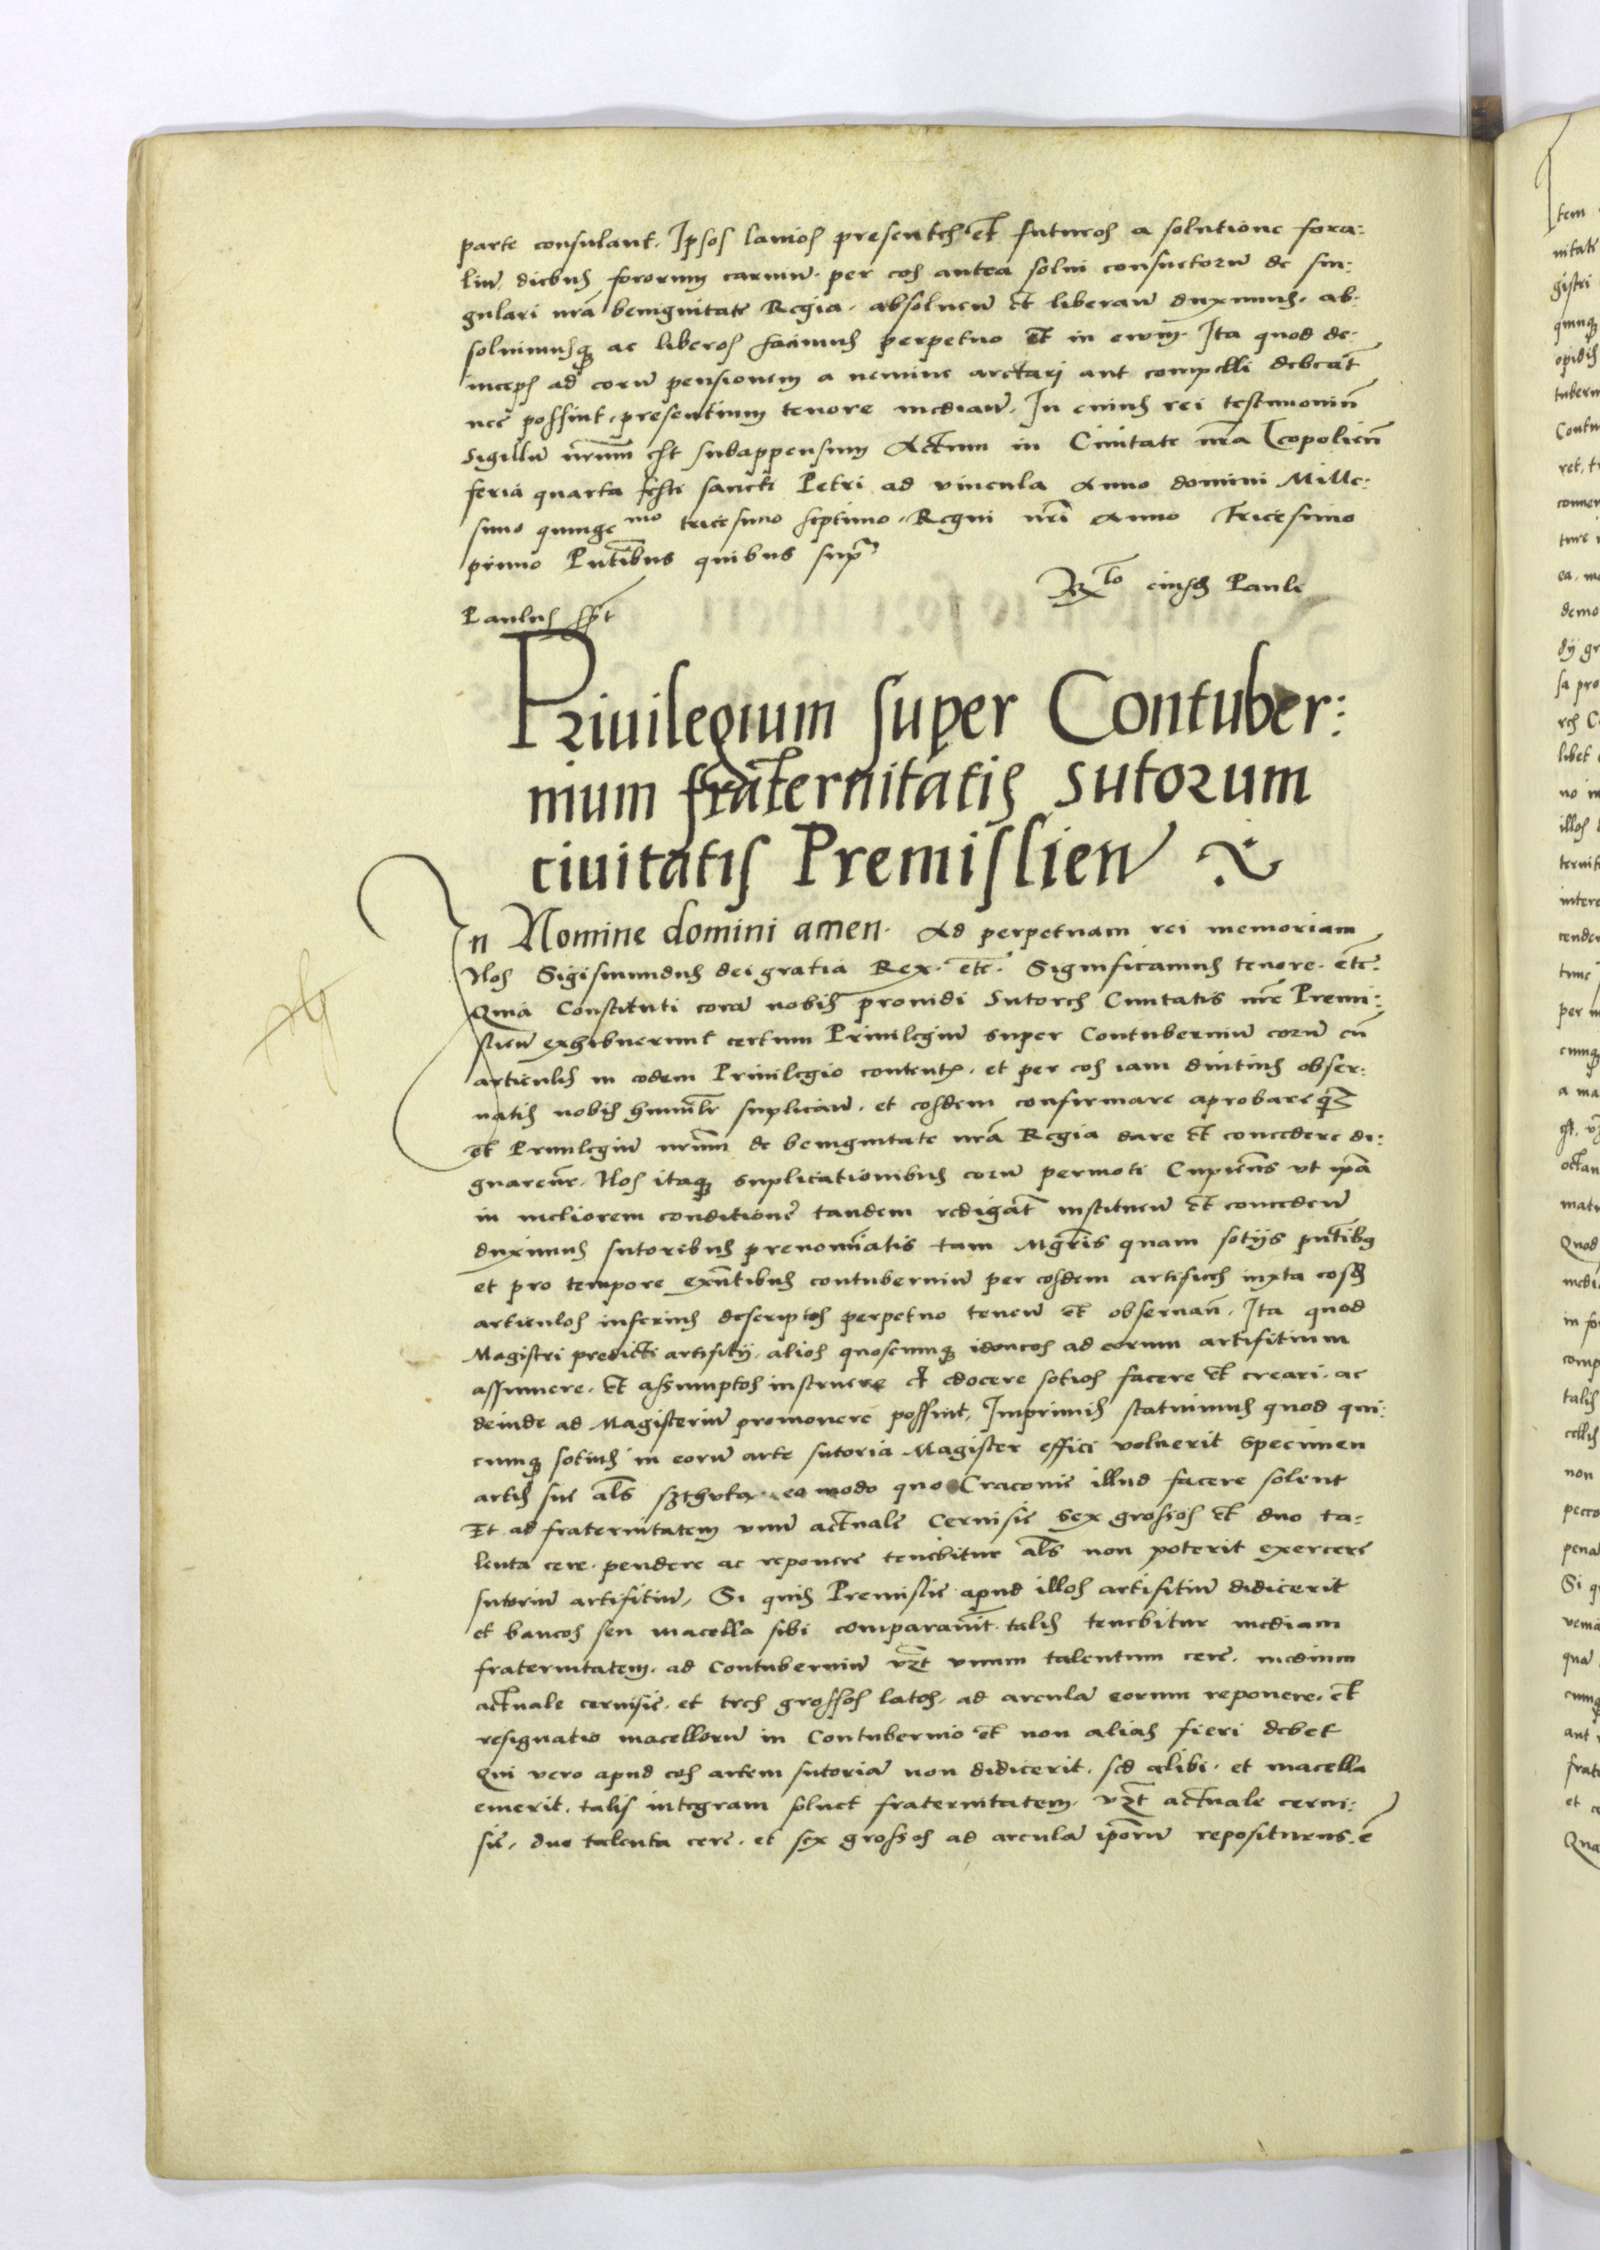 parte consulant. Ipsos lanios presentes et futuros a solutione fora:
liũ diebus fororum carniũ. per eos antea solui consuetorũ de sin:
gulari nrã benignitate Regia. absoluen̄ et liberan̄ duximus. ab-
soluimusq; ac liberos facimus perpetuo et in ewm̃. Ita quod de-
inceps ad eorũ pensionem a nemine arctari aut compelli debeãt
nec possint. presentium tenore median̄. In cuius rei testimoniũ
Sigillũ nr̃um est subappensum Actum in Ciuitate nr̃a Leopolien̄
feria quarta festi sancti Petri ad vincula Anno domini Mille:
simo quingemo tricesimo septimo. Regni nr̃i Anno Tricesimo
primo Pñtibus quibus supra
Rto eiusdẽ Pauli
Paulus spt
Priuilegium super Contuber:
nium fraternitatis sutorum
ciuitatis Premislien̄
In Nomine domini amen. Ad perpetuam rei memoriam
Nos Sigismundus dei gratia Rex. etc̃. Significamus tenore. etc̃.
Quia Constituti corã nobis prouidi Sutores Ciuitatis nr̃e Premi:
slien̄ exhibuerunt certum Priuilegiũ super Contuberniũ eorũ cũ
articulis in eodem Priuilegio contentis. et per eos iam diutius obser:
uatis nobis humilr̃ suplican̄. et eosdem confirmare aprobareq;
et Priuilegiũ nr̃um de benignitate nrã Regia dare et concedere di:
gnarem̃r. Nos itaq; suplicationibus eorũ permoti Cupien̄s vt ip̃a
in meliorem conditionẽ tandem redigãt instituen̄ et conceden̄
duximus sutoribus prenom̃iatis tam Mgr̃is quam sotijs pñtibus
et pro tempore exñtibus contuberniũ per eosdem artifices iuxta eosdẽ
articulos inferius descriptos perpetuo tenen̄ et obseruan̄. Ita quod
Magistri predicti artifitij. alios quoscumq; idoneos ad eorum artifitium
assumere. et assumptos instruere et edocere sotios facere et creari. ac
deinde ad Magisteriũ promouere possint. Imprimis statuimus quod qui:
cumq; sotius in eorũ arte sutoria Magister effici voluerit Specimen
artis sue al̃s szthvka eo modo quo Cracouie illud facere solent
Et ad fraternitatem vnũ actuale Ceruisie Sex grossos et duo ta-
lenta cere. pendere ac reponere tenebitur al̃s non poterit exercere
sutoriũ artifitiũ. Si quis Premislie apud illos artifitiũ didicerit
et bancos seu macella sibi comparauit. talis tenebitur mediam
fraternitatem. ad Contuberniũ vz̃t vnum talentum cere. medium
actuale ceruisie. et tres grossos latos. ad arculã eorum reponere. et
resignatio macellorũ in Contubernio et non alias fieri debet
Qui vero apud eos artem sutoriã non didicerit. sed alibi. et macella
emerit. talis integram soluet fraternitatem. vz̃t actuale cerui:
sie. duo talenta cere. et sex grossos ad arculã ip̃orũ repositurus. ẽ